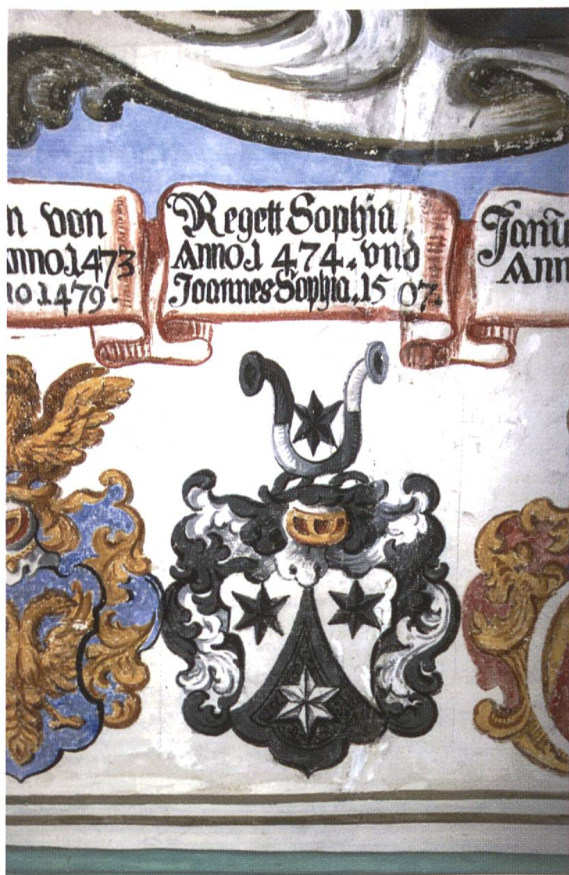 n von
Anno.1473
no.1479.
Regett Sophia
Anno.1474. vnd
Joannes Sophia.1507.
Janū
Ann